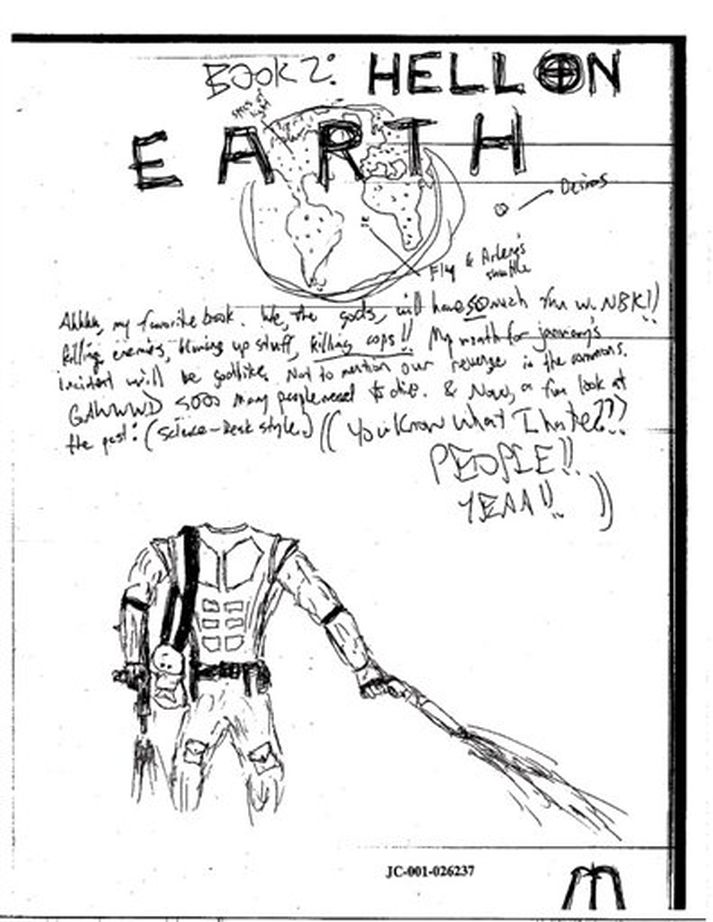 BOOK 2: HELL ON
EARTH
Deimos
Fly & Arlene's
shuttle
Ahhhh, my favorite book. We, the gods, will have SO much fun w. NBK!!
Killing enemies, blowing up stuff, killing cops!! My wrath for january's
incident will be godlike. Not to mention our revenge in the commons.
GAWWWD sooo many people need to die. & Now, a fun look at
the past: (Science-Desk style) (( You know what I hate???
PEOPLE!!
YEAA!! ))
JC-001-026237